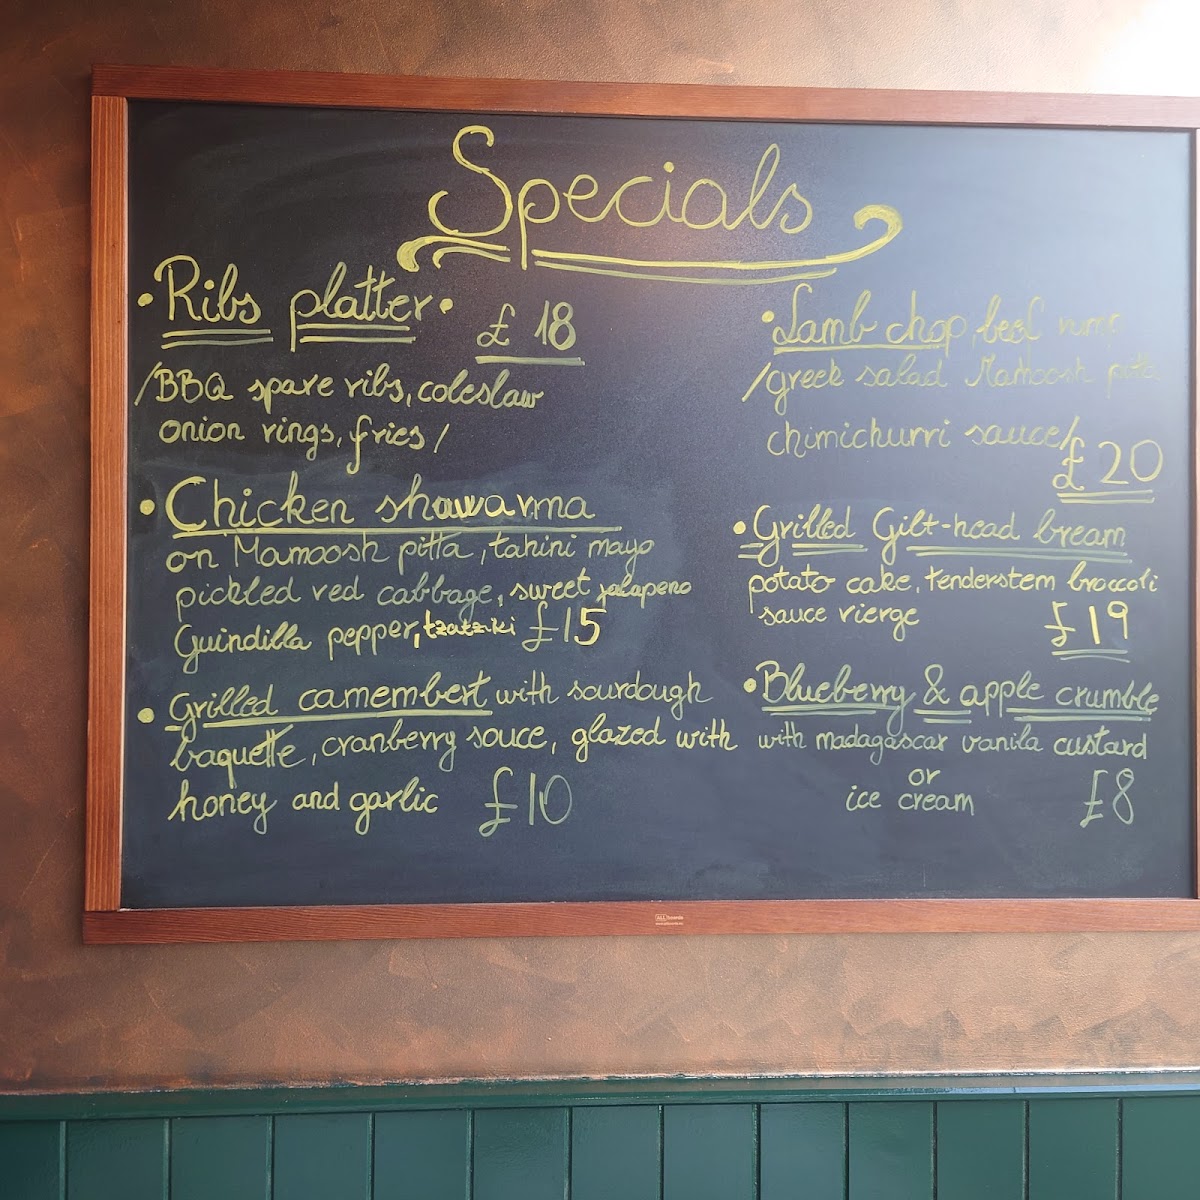 Specials
• Ribs platter • £ 18
/BBQ spare ribs, coleslaw
onion rings, fries/
• Chicken shawarma
on Mamoosh pitta, tahini mayo
pickled red cabbage, sweet jalapeno
Guindilla pepper, tzatziki £15
• Grilled camembert with sourdough
baquette, cranberry souce, glazed with
honey and garlic £10
• Lamb chop, beef rump
/greek salad Mamoosh pitta
chimichurri sauce/
£20
• Grilled Gilt-head bream
potato cake, tenderstem broccoli
sauce vierge £19
• Blueberry & apple crumble
with madagascar vanila custard
or
ice cream £8
ALLboards